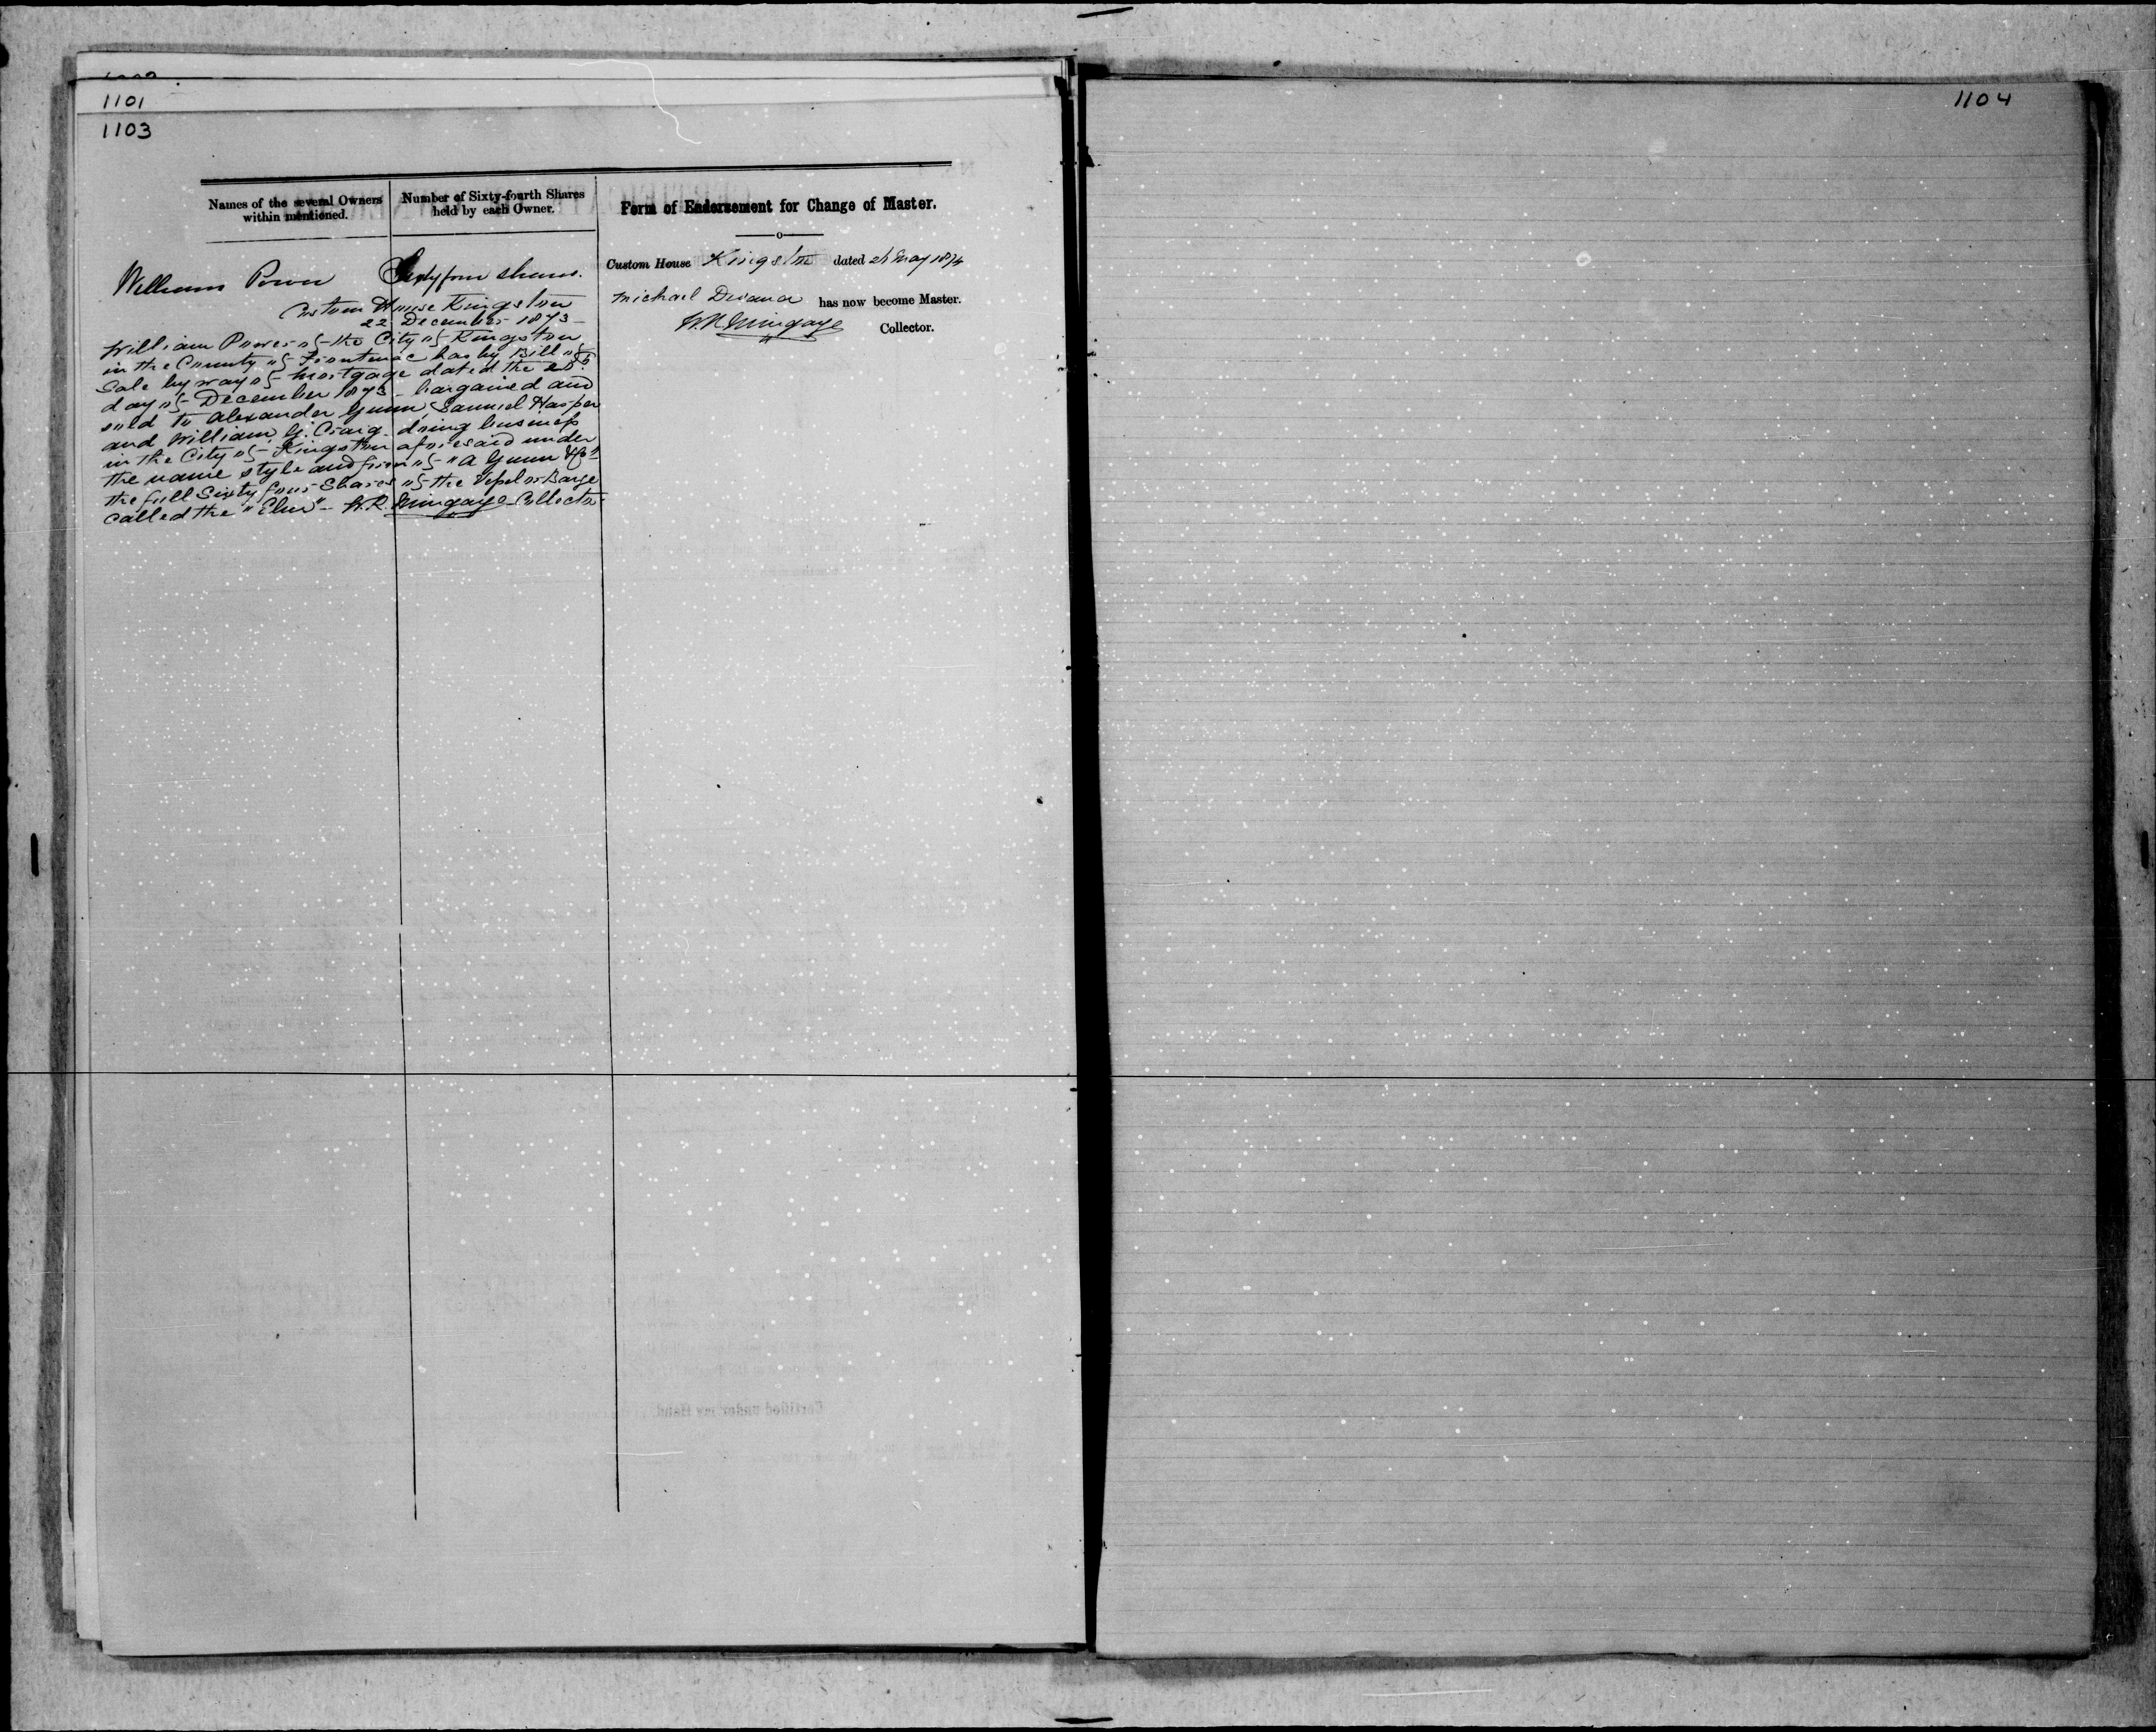 1101
1103
1104
Names of the several Owners within mentioned.
Number of Sixty-fourth Shares held by each Owner.
William Power Sixty four shares.
Custom House Kingston
22 December 1873
William Power of the City of Kingston
in the County of Frontenac has by Bill of
Sale by way of Mortgage dated the 20th
day of December 1873 - bargained and
sold to Alexander Gunn, Samuel Harper
and William G. Craig doing business
in the City of Kingston aforesaid under
the name style and firm of "A Gunn & Co"
the full Sixty four Shares of the Vessel or Barge
called the "Elm" - W.R. Mingaye Collector
Form of Endorsement for Change of Master.
Custom House Kingston dated May 1874
Michael has now become Master.
W.R. Mingaye Collector.